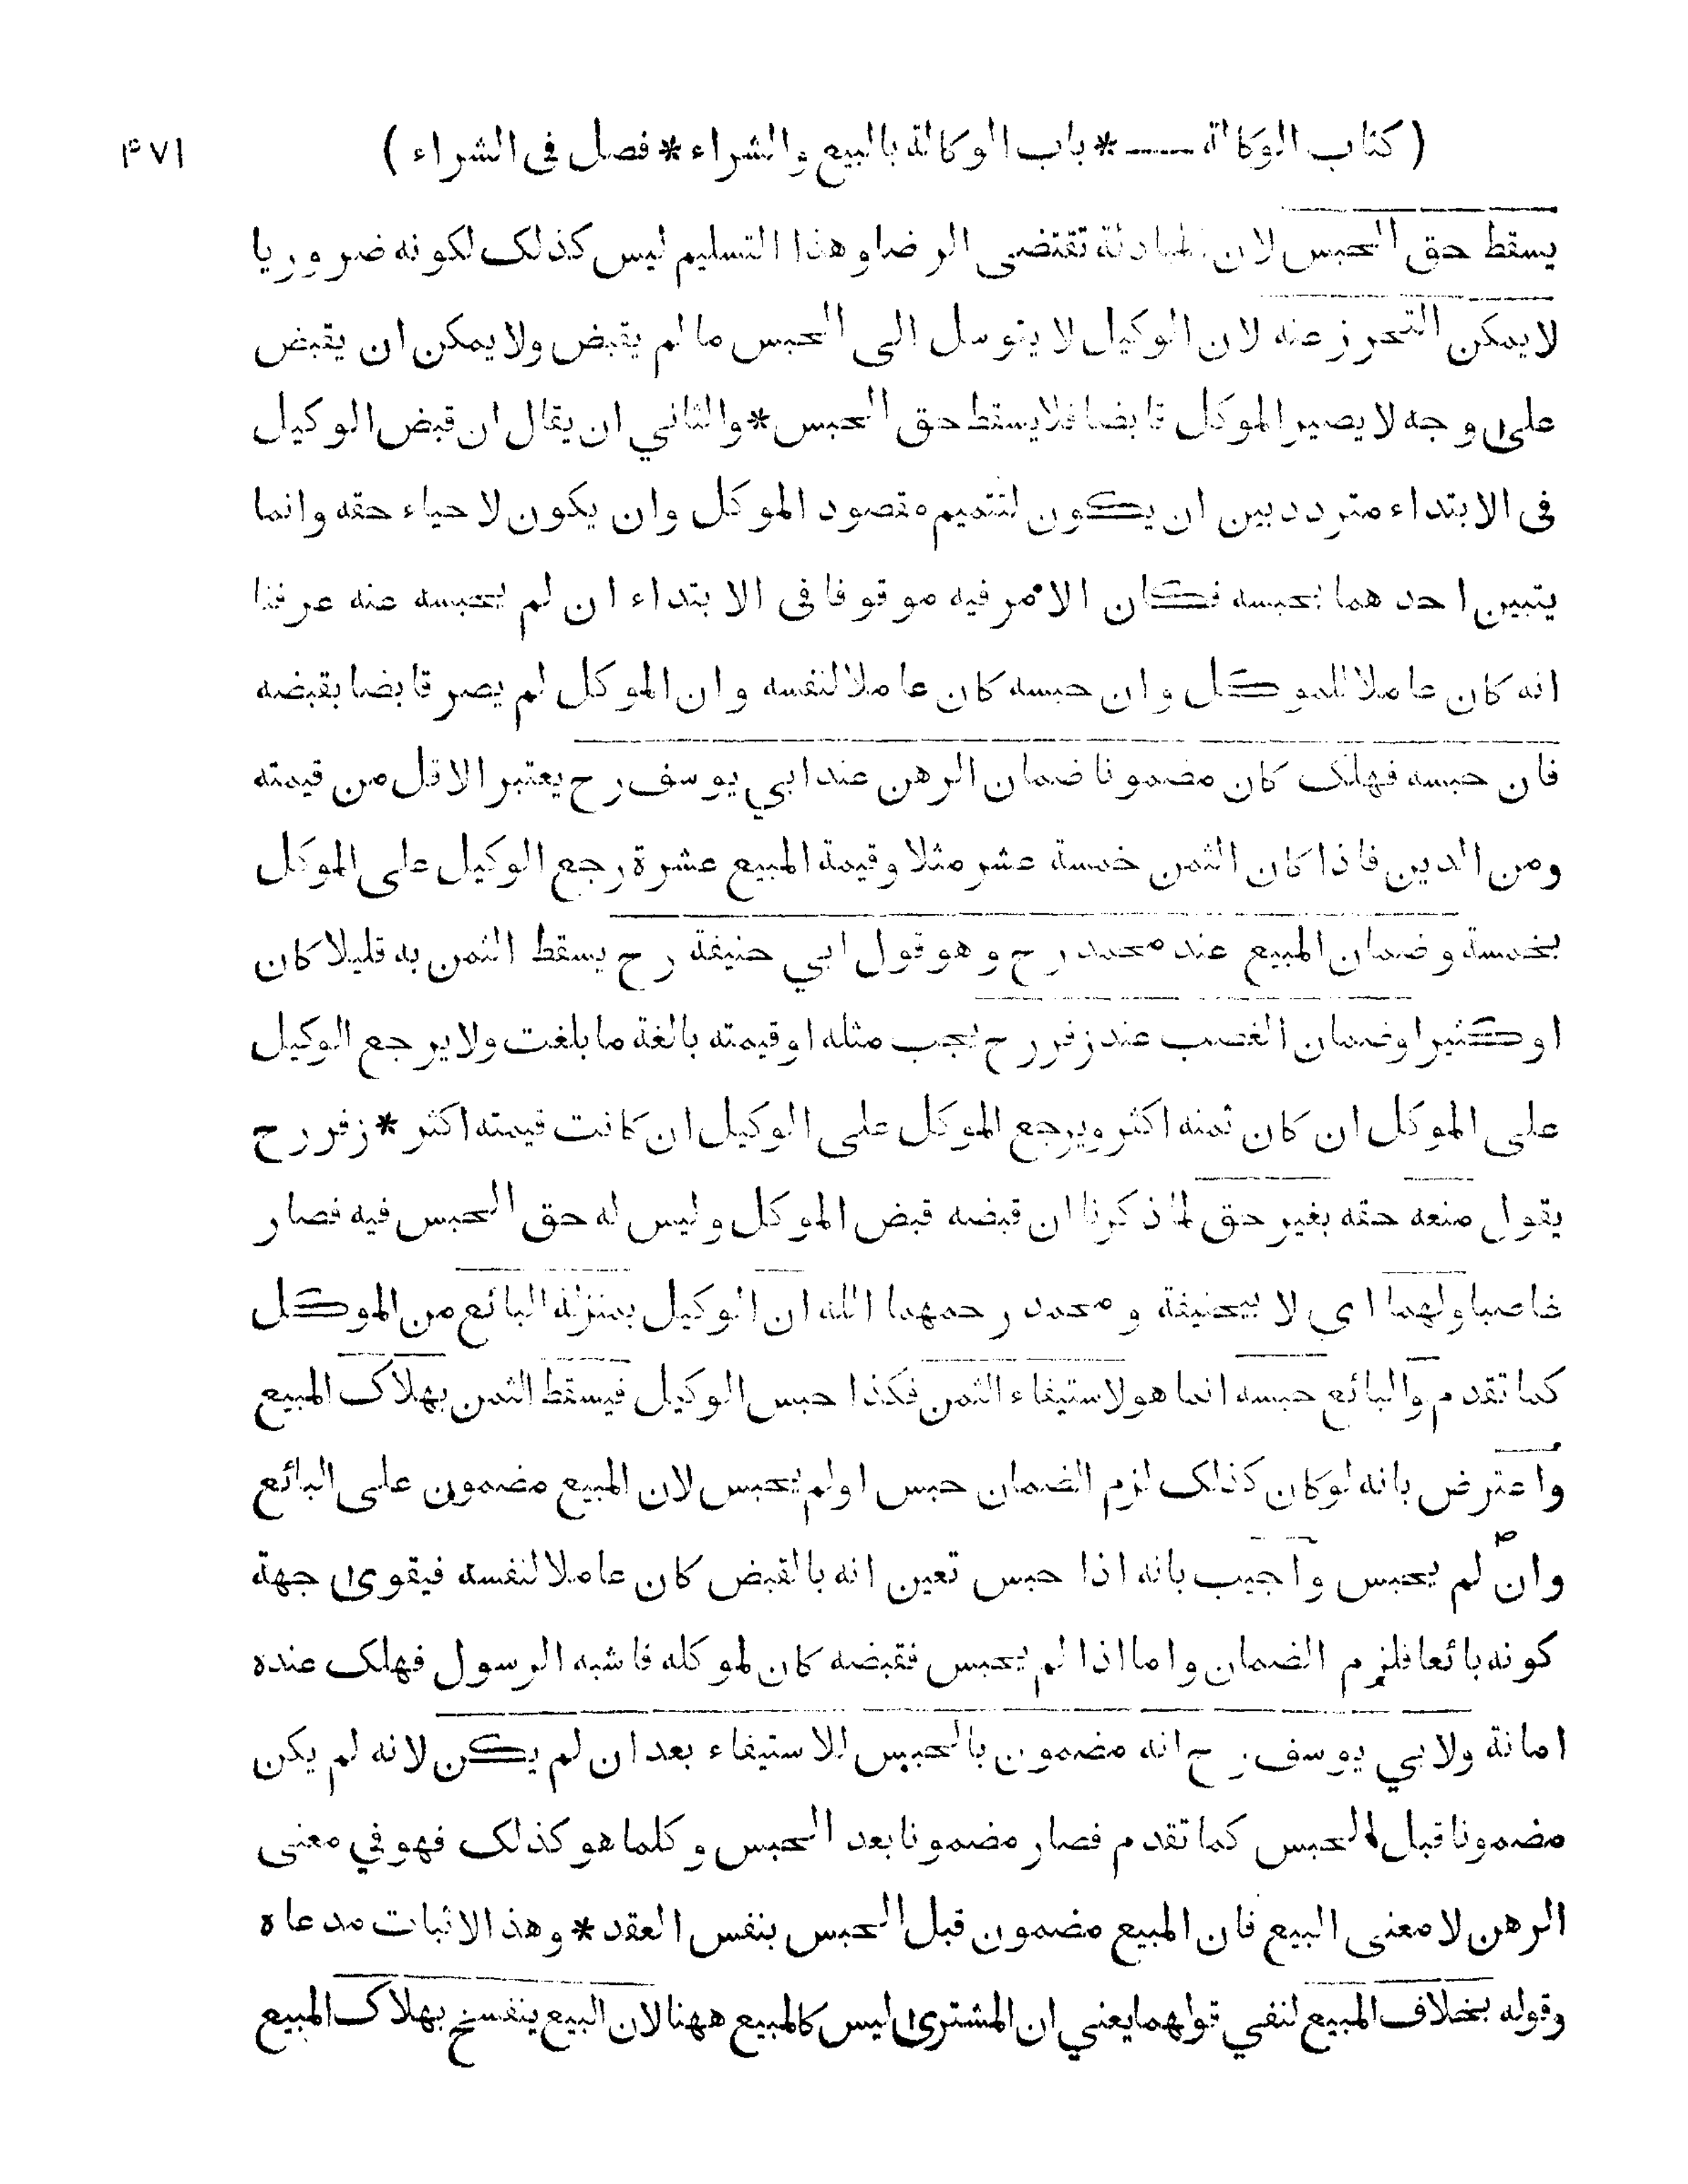 ( كتاب الوكالة ـــ * باب الوكالة بالبيع والشراء * فصل فى الشراء ) ۴۷۱
يسقط حق الحبس لان تقتضى الرضا وهذا التسليم ليس كذلك لكونه ضروريا
لايمكن التحرز عنه لان الوكيل لا يتوسل الى الحبس مالم يقبض ولايمكن ان يقبض
على وجه لا يصير الموكل قابضا فلايسقط حق الحبس * والثاني ان يقال ان قبض الوكيل
فى الابتداء متردد بين ان يكون لتتميم مقصود الموكل وان يكون لاحياء حقه وانما
يتبين احدهما بحبسه فكان الامر فيه موقوفا فى الابتداء ان لم يحبسه عنه عرفنا
انه كان عاملا للموكل وان حبسه كان عاملا لنفسه وان الموكل لم يصر قابضا بقبضه
فان حبسه فهلك كان مضمونا ضمان الرهن عند ابي يوسف رح يعتبر الاقل من قيمته
ومن الدين فاذا كان الثمن خمسة عشر مثلا وقيمة المبيع عشرة رجع الوكيل على الموكل
بخمسة وضمان المبيع عند محمد رح وهو قول ابي حنيفة رح يسقط الثمن به قليلا كان
اوكثيرا وضمان الغصب عند زفر رح يجب مثله او قيمته بالغة مابلغت ولايرجع الوكيل
على الموكل ان كان ثمنه اكثر ويرجع الموكل على الوكيل ان كانت قيمته اكثر * زفر رح
يقول منعه حقه بغير حق لماذكرنا ان قبضه قبض الموكل وليس له حق الحبس فيه فصار
غاصبا ولهما اى لا بيحنيفة ومحمد رحمهما الله ان الوكيل بمنزلة البائع من الموكل
كما تقدم والبائع حبسه انما هو لاستيفاء الثمن فكذا حبس الوكيل فيسقط الثمن بهلاك المبيع
واعترض بانه لوكان كذلك لزم الضمان حبس اولم يحبس لان المبيع مضمون على البائع
وان لم يحبس وآجيب بانه اذا حبس تعين انه بالقبض كان عاملا لنفسه فيقوى جهة
كونه بائعا فلزم الضمان واما اذا لم يحبس فقبضه كان لموكله فاشبه الرسول فهلك عنده
امانة ولابي يوسف رح انه مضمون بالحبس للاستيفاء بعد ان لم يكن لانه لم يكن
مضمونا قبل الحبس كما تقدم فصار مضمونا بعد الحبس وكلما هو كذلك فهو في معنى
الرهن لا معنى البيع فان المبيع مضمون قبل الحبس بنفس العقد * وهذا لاثبات مدعاه
وقوله بخلاف المبيع لنفي قولهما يعني ان المشترى ليس كالمبيع ههنا لان البيع ينفسخ بهلاك المبيع